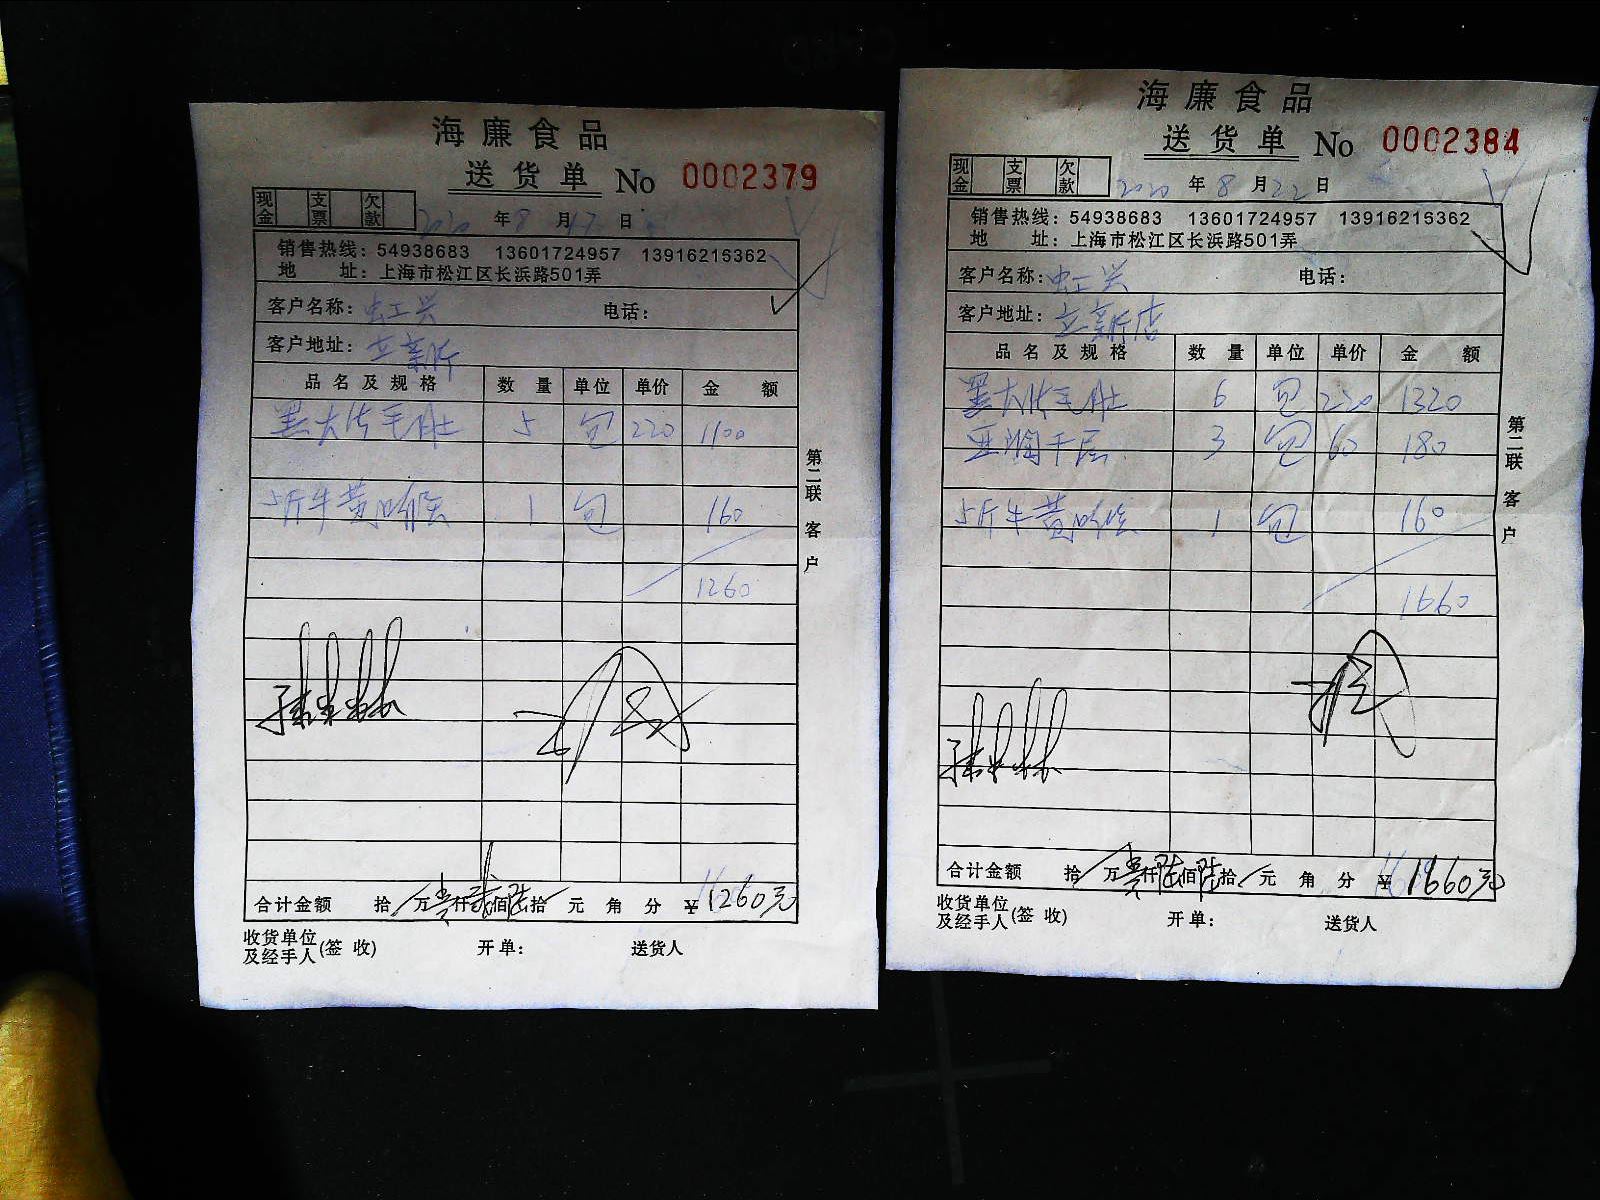 海廉食品
送货单 No 0002379
现金 支票 欠款 2020年8月17日
销售热线：54938683 13601724957 13916215362
地 址：上海市松江区长浜路501弄
客户名称：虹兴 电话：
客户地址：立新
品名及规格 数量 单位 单价 金额
大片毛肚 5 包 220 1100
5斤牛黄喉 1 包 160
1260
合计金额 拾 万壹仟贰佰陆拾 元 角 分 ¥1260元
收货单位及经手人(签收) 开单： 送货人
第二联 客户
海廉食品
送货单 No 0002384
现金 支票 欠款 2020年8月22日
销售热线：54938683 13601724957 13916215362
地 址：上海市松江区长浜路501弄
客户名称：虹兴 电话：
客户地址：立新店
品名及规格 数量 单位 单价 金额
大片毛肚 6 包 220 1320
千层 3 包 60 180
5斤牛黄喉 1 包 160
1660
合计金额 拾 万壹仟陆佰陆拾 元 角 分 ¥1660元
收货单位及经手人(签收) 开单： 送货人
第二联 客户